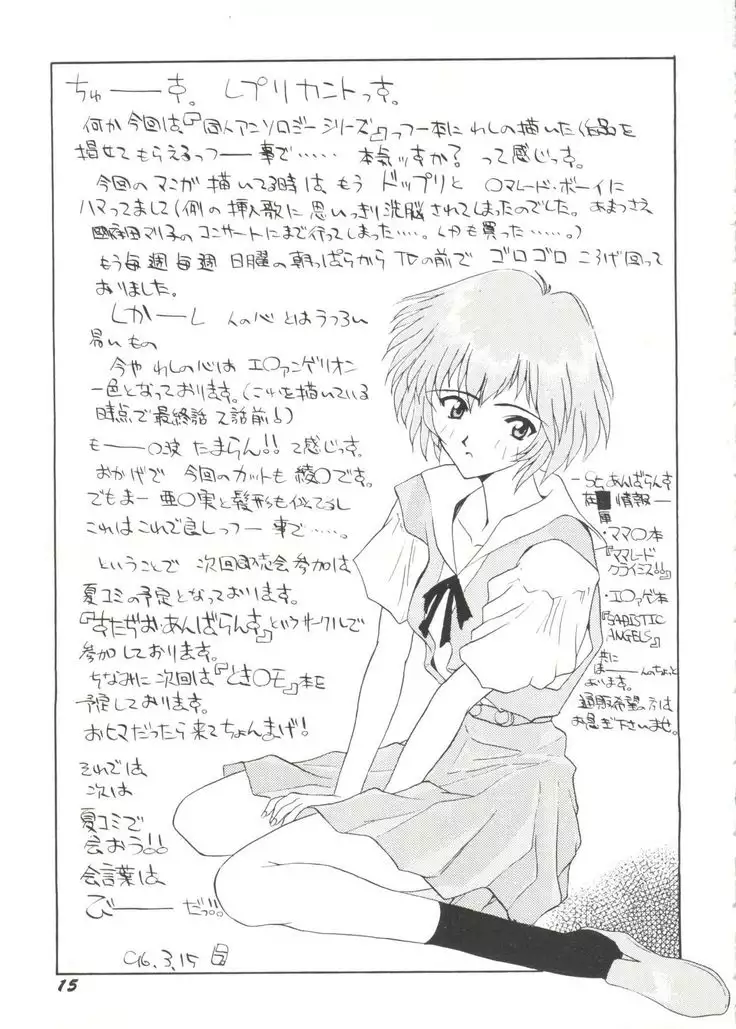 ちゅーーす。 レプリカントっす。
何か今回は、『同人アンソロジーシリーズ』っつー本に わしの描いた作品を
掲せてもらえるっつーー事で…… 本気ッすか? って感じっす。
今回のマンガ描いてる時は、もう ドップリと ○マレード・ボーイに
ハマってまして(例の挿入歌に思いっきり洗脳されてしまったのでした。あまつさえ
國府田マリ子のコンサートにまで行ってしまった……。Cかも買った……。)
もう毎週毎週 日曜の朝っぱらから TVの前で ゴロゴロ ころげ回って
おりました。
しかーーし 人の心 とはうつろい
易いもの
今や わしの心は エ○ァンゲリオン
一色となっております。(これを描いている
時点で最終話2話前!)
もーー○波 たまらん!! て感じっす。
おかげで 今回のカットも 綾○です。
でもまー 亜○実と髪形も似てるし
これはこれで良しっつー事で……。
ということで 次回即売会参加は
夏コミの予定となっております。
『すたぢお・あんばらんす』というサークルで
参加しております。
ちなみに 次回は『とき○モ』本を
予定しております。
おヒマだったら来てちょんまげ!
それでは
次は
夏コミで
会おう!!
会言葉は
びーー だっ!!
'96.3.15
-St.あんばらんす
在庫情報-
・ママ○本
『ママレード
クライミス!!』
・エ○ァゲ本
『SADISTIC
ANGELS』
共に
まーーんのちょっと
あります。
通販希望の方は
お急ぎ下さいませ。
15